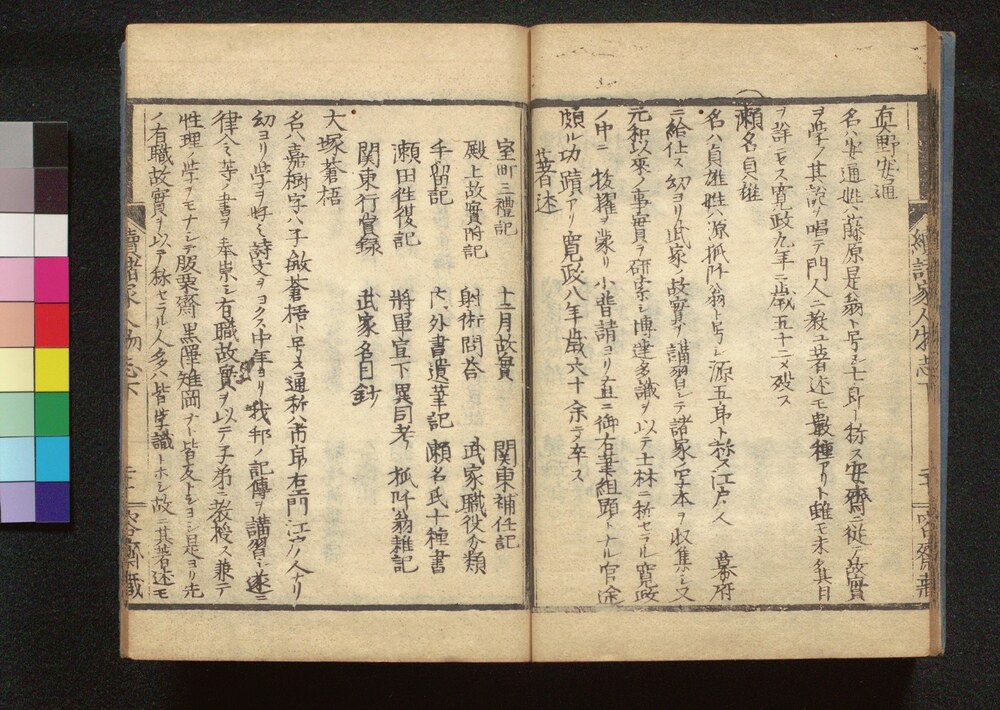 真野安通
名ハ安通姓ハ藤原是翁ト号シ七郎ト称ス安齋ニ従テ故實
ヲ学ノ其説ヲ唱テ門人ニ教ユ著述モ數種アリト雖モ未其目
ヲ詳ニセス寛政九年ニ歳五十二ニメ殁ス
瀬名貞雄
名ハ貞雄姓ハ源狐阡翁ト号シ源五郎ト称ス江戸ノ人 幕府
ニ給仕ス幼ヨリ武家ノ故實ヲ講習シテ諸家ノ写本ヲ収集シ又
元和以來ノ事實ヲ研索シ博達多識ヲ以テ士林ニ称セラル寛政
ノ中ニ 抜擢ヲ蒙リ小普請ヨリ直ニ御右筆組頭トナル官途
頗ル功蹟アリ寛政八年歳六十余ヲ卒ス
著述
室町三禮記 十二月故實 関東補任記
殿上故實附記 射術問荅 武家職役分類
千留記 内外書遺筆記 瀬名氏十種書
瀬田往復記 将軍宣下異同考 狐阡翁雑記
関東行賞録 武家名目鈔
大塚蒼梧
名ハ嘉樹字ハ子敏蒼梧ト号ス通称ハ市郎右エ門江戸ノ人ナリ
幼ヨリ学ヲ好ミ詩文ヲヨクス中年ヨリ我邦ノ記傳ヲ講習シ遂ニ
律令等ノ書ヲ奉崇シ有職故實ヲ以テ子弟ニ教授ス兼テ
性理ノ学ヲモナシテ服栗齋黒澤雉岡ヲト皆友トシヨシ是ヨリ先
ノ有職故實ヲ以テ称セラルヽ人多ハ皆学識トホシ故ニ其著述モ
續諸家人物志下